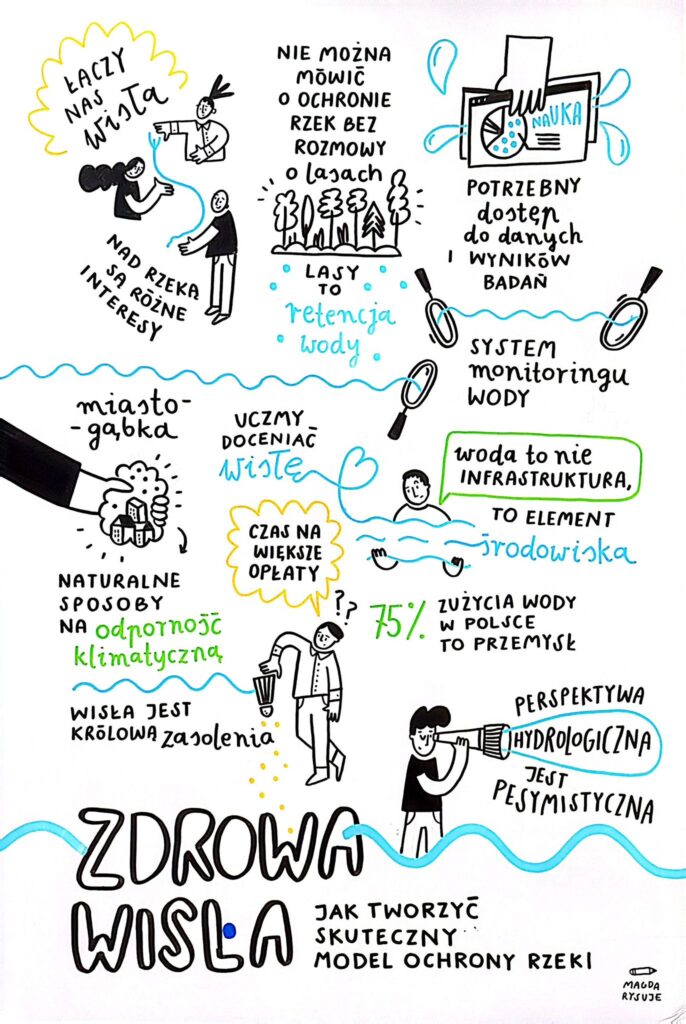 ŁĄCZY
NAS
Wisła
NAD RZEKĄ
SĄ RÓŻNE
INTERESY
NIE MOŻNA
MÓWIĆ
O OCHRONIE
RZEK BEZ
ROZMOWY
o lasach
LASY
TO
retencja
wody
NAUKA
POTRZEBNY
dostęp
do danych
I WYNIKÓW
BADAŃ
SYSTEM
monitoringu
WODY
miasto-
-gąbka
NATURALNE
SPOSOBY
NA odporność
klimatyczną
UCZMY
DOCENIAĆ
Wisłę
woda to nie
INFRASTRUKTURA,
TO ELEMENT
środowiska
CZAS NA
WIĘKSZE
OPŁATY
??
75% ZUŻYCIA WODY
W POLSCE
TO PRZEMYSŁ
WISŁA JEST
KRÓLOWĄ zasolenia
PERSPEKTYWA
HYDROLOGICZNA
JEST
PESYMISTYCZNA
ZDROWA
WISŁA
JAK TWORZYĆ
SKUTECZNY
MODEL OCHRONY RZEKI
MAGDA
RYSUJE